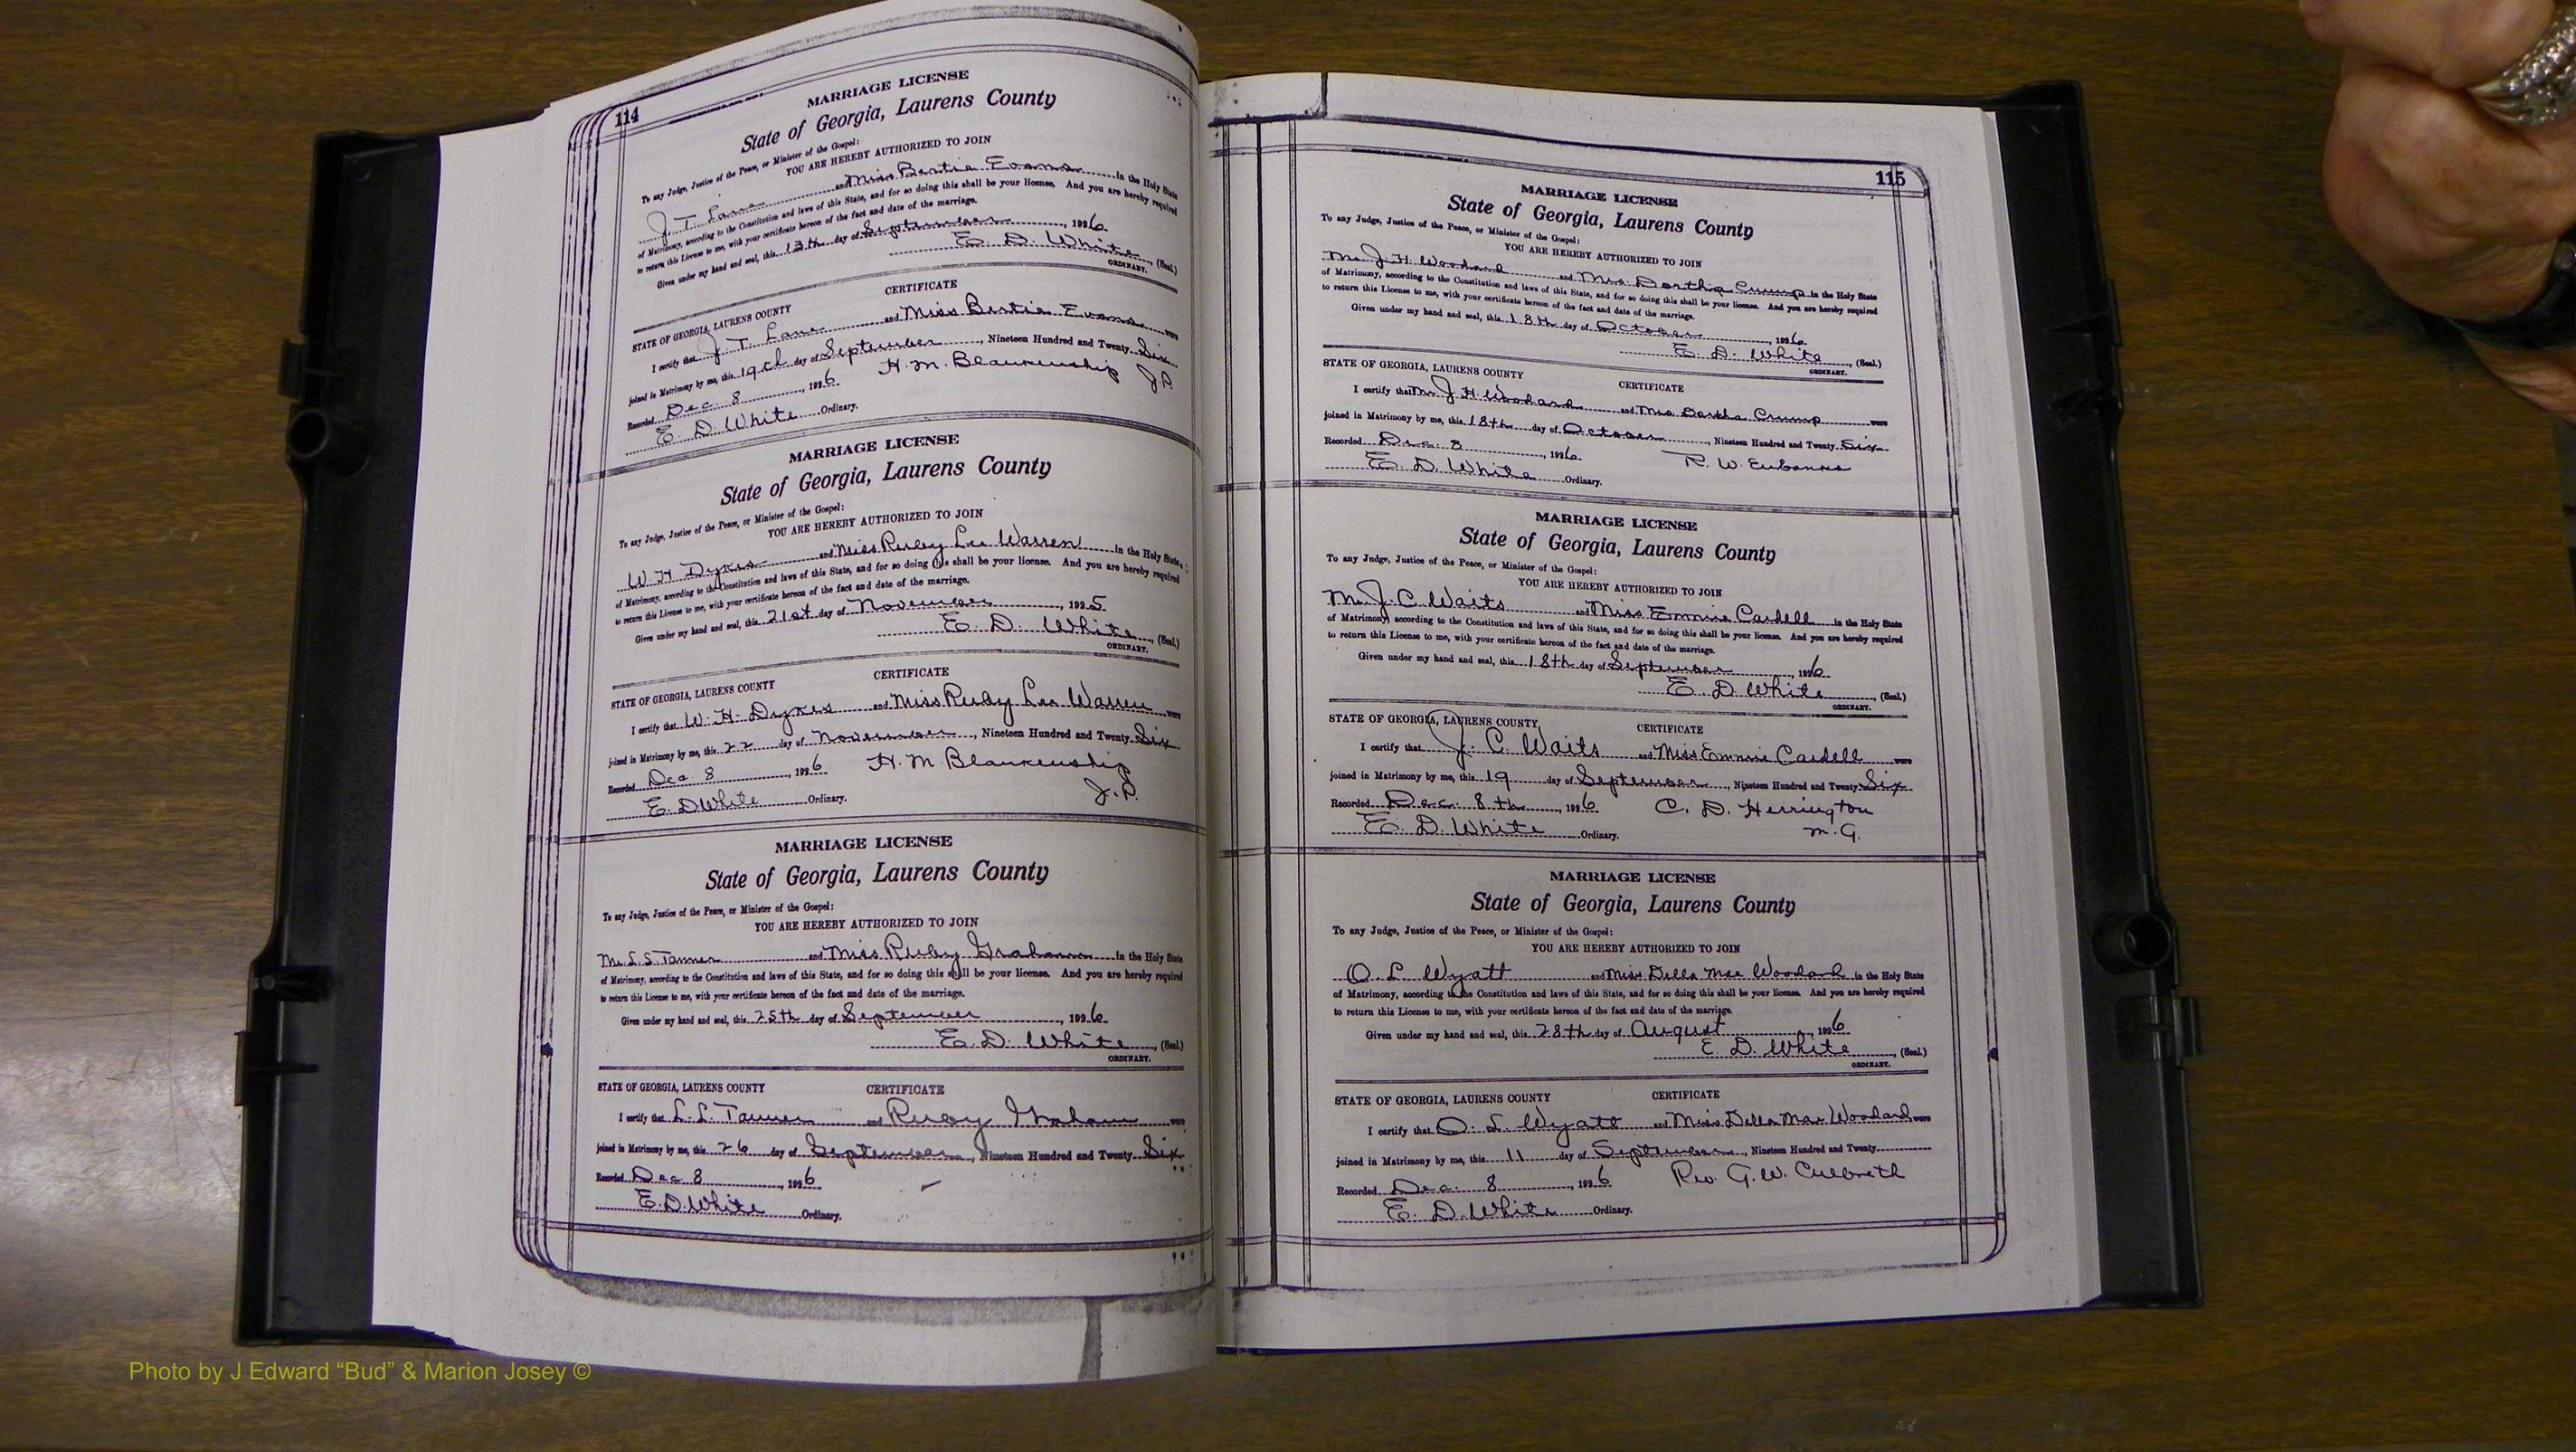 114
MARRIAGE LICENSE
State of Georgia, Laurens County
To any Judge, Justice of the Peace, or Minister of the Gospel:
YOU ARE HEREBY AUTHORIZED TO JOIN
J. T. Lane and Miss Bertie Evans in the Holy State
of Matrimony, according to the Constitution and laws of this State, and for so doing this shall be your license. And you are hereby required
to return this License to me, with your certificate hereon of the fact and date of the marriage.
Given under my hand and seal, this 13th day of September, 1926
E. D. White, (Seal)
ORDINARY.
CERTIFICATE
STATE OF GEORGIA, LAURENS COUNTY
I certify that J. T. Lane and Miss Bertie Evans were
joined in Matrimony by me, this 19th day of September, Nineteen Hundred and Twenty Six
Recorded Dec. 8, 1926 H. M. Blankenship J.P.
E. D. White Ordinary.
MARRIAGE LICENSE
State of Georgia, Laurens County
To any Judge, Justice of the Peace, or Minister of the Gospel:
YOU ARE HEREBY AUTHORIZED TO JOIN
W. H. Dykes and Miss Ruby Lee Warren in the Holy State
of Matrimony, according to the Constitution and laws of this State, and for so doing this shall be your license. And you are hereby required
to return this License to me, with your certificate hereon of the fact and date of the marriage.
Given under my hand and seal, this 21st day of November, 1925
E. D. White, (Seal)
ORDINARY.
CERTIFICATE
STATE OF GEORGIA, LAURENS COUNTY
I certify that W. H. Dykes and Miss Ruby Lee Warren were
joined in Matrimony by me, this 22 day of November, Nineteen Hundred and Twenty Six
Recorded Dec 8, 1926 H. M. Blankenship
J.P.
E. D White Ordinary.
MARRIAGE LICENSE
State of Georgia, Laurens County
To any Judge, Justice of the Peace, or Minister of the Gospel:
YOU ARE HEREBY AUTHORIZED TO JOIN
Mr. L. S. Tanner and Miss Ruby Graham in the Holy State
of Matrimony, according to the Constitution and laws of this State, and for so doing this shall be your license. And you are hereby required
to return this License to me, with your certificate hereon of the fact and date of the marriage.
Given under my hand and seal, this 25th day of September, 1926
E. D. White, (Seal)
ORDINARY.
STATE OF GEORGIA, LAURENS COUNTY CERTIFICATE
I certify that L. L. Tanner and Ruby Graham were
joined in Matrimony by me, this 26 day of September, Nineteen Hundred and Twenty Six
Recorded Dec 8, 1926
E. D. White Ordinary.
115
MARRIAGE LICENSE
State of Georgia, Laurens County
To any Judge, Justice of the Peace, or Minister of the Gospel:
YOU ARE HEREBY AUTHORIZED TO JOIN
Mr. J. H. Woodard and Mrs. Crump in the Holy State
of Matrimony, according to the Constitution and laws of this State, and for so doing this shall be your license. And you are hereby required
to return this License to me, with your certificate hereon of the fact and date of the marriage.
Given under my hand and seal, this 18th day of October, 1926
E. D. White, (Seal)
ORDINARY.
STATE OF GEORGIA, LAURENS COUNTY
CERTIFICATE
I certify that Mr J. H. Woodard and Mrs Crump were
joined in Matrimony by me, this 18th day of October, Nineteen Hundred and Twenty Six
Recorded Dec. 8, 1926 R. W. Eubanks
E. D. White Ordinary.
MARRIAGE LICENSE
State of Georgia, Laurens County
To any Judge, Justice of the Peace, or Minister of the Gospel:
YOU ARE HEREBY AUTHORIZED TO JOIN
Mr. J. C. Waits and Miss Emmie Cardell in the Holy State
of Matrimony, according to the Constitution and laws of this State, and for so doing this shall be your license. And you are hereby required
to return this License to me, with your certificate hereon of the fact and date of the marriage.
Given under my hand and seal, this 18th day of September, 1926
E. D. White, (Seal)
ORDINARY.
STATE OF GEORGIA, LAURENS COUNTY,
CERTIFICATE
I certify that J. C. Waits and Miss Emmie Cardell were
joined in Matrimony by me, this 19 day of September, Nineteen Hundred and Twenty Six
Recorded Dec. 8th, 1926 C. D. Herrington
M. G.
E. D. White Ordinary.
MARRIAGE LICENSE
State of Georgia, Laurens County
To any Judge, Justice of the Peace, or Minister of the Gospel:
YOU ARE HEREBY AUTHORIZED TO JOIN
O. L. Wyatt and Miss Della Mae Woodard in the Holy State
of Matrimony, according to the Constitution and laws of this State, and for so doing this shall be your license. And you are hereby required
to return this License to me, with your certificate hereon of the fact and date of the marriage.
Given under my hand and seal, this 28th day of August, 1926
E. D. White, (Seal)
ORDINARY.
STATE OF GEORGIA, LAURENS COUNTY CERTIFICATE
I certify that O. L. Wyatt and Miss Della Mae Woodard were
joined in Matrimony by me, this 11 day of September, Nineteen Hundred and Twenty
Recorded Dec. 8, 1926 Rev. G. W. Culbreth
E. D. White Ordinary.
Photo by J Edward “Bud” & Marion Josey ©